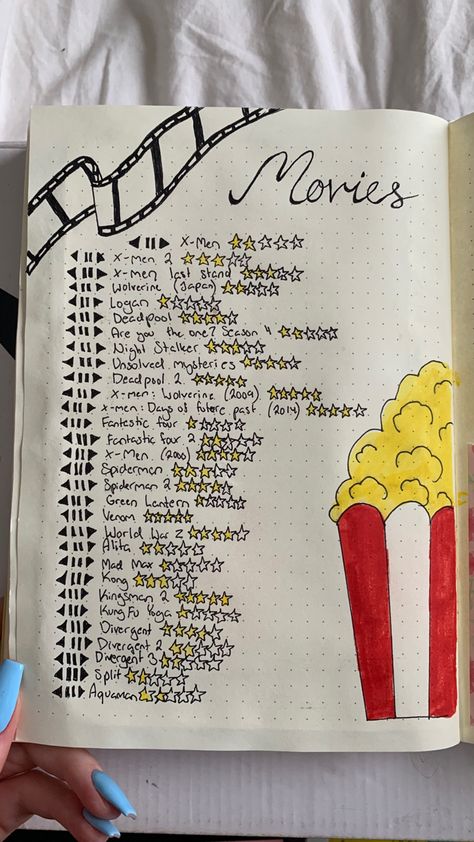 Movies
X-Men
X-Men 2
X-men last stand
Wolverine (Japan)
Logan
Deadpool
Are you the one? Season 4
Night Stalker
Unsolved mysteries
Deadpool 2
X-men: Wolverine (2009)
X-men: Days of future past (2014)
Fantastic four
Fantastic four 2
X-Men (2000)
Spiderman
Spiderman 2
Green Lantern
Venom
World War Z
Alita
Mad Max
Kong
Kingsman 2
Kung Fu Yoga
Divergent
Divergent 2
Divergent 3
Split
Aquaman